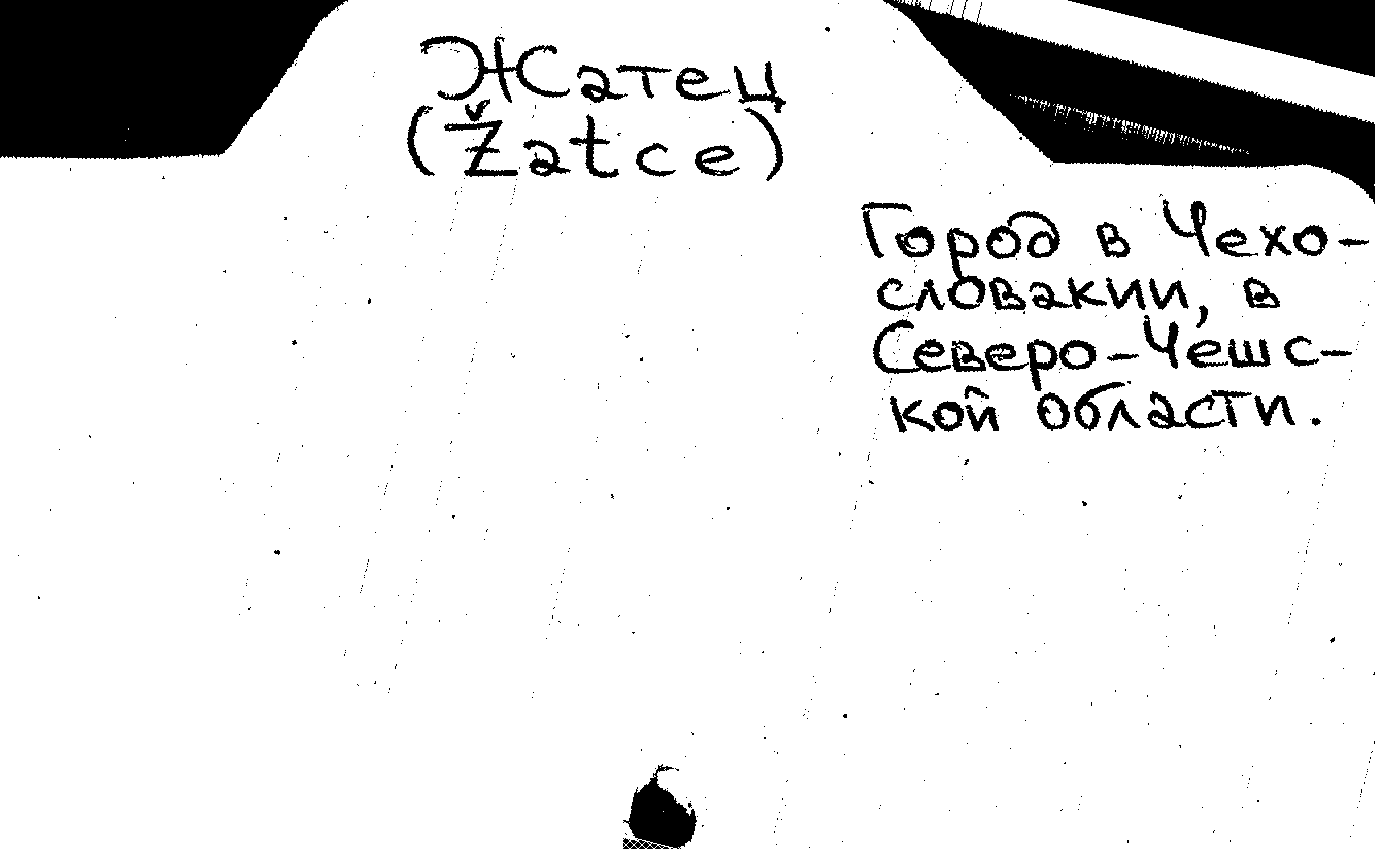 Жатец
(Žatce)
Город в Чехо-
словакии, в
Северо-Чешс-
кой области.